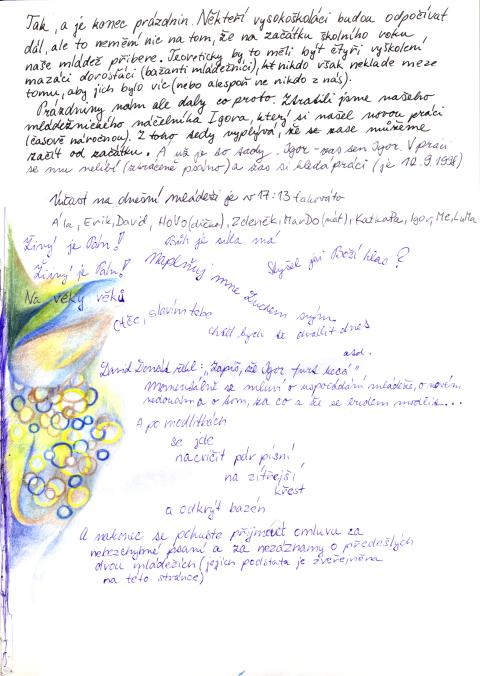 Tak, a je konec prázdnin. Někteří vysokoškoláci budou odpočívat
dál, ale to nemění nic na tom, že na začátku školního roku
naše mládež přibere. Teoreticky by to měli být čtyři vyškolení
mazáci dorosťáci (bažanti mládežníci), nikdo však neklade meze
tomu, aby jich bylo víc (nebo alespoň ne nikdo z nás).
Prázdniny nám ale daly co proto. Ztratili jsme našeho
mládežnického náčelníka Igora, který si našel novou práci
(časově náročnou). Z toho tedy vyplývá, že se zase můžeme
začít od začátku. A už je to tady. Igor - zas ten Igor. V práci
se mu nelíbí (ztráceně písmo) a zas si hledá práci (je 12.9.1998)
Účast na dnešní mládeži je v 17:13 takováto
Ála, Erik, David, HoVo, Zdeněk, MarDo, Katka, Igor, Me, LuMa
Živý je Pán! Bůh je síla má
Živý je Pán! Naplňuj mne Duchem svým Slyšel jsi Boží hlas?
Na věky věků
Otče, slavím tebe
chtěl bych tě chválit dnes
atd.
David Donát řekl: "Zapiš, že Igor furt kecá"
Momentálně se mluví o uspořádání mládeže, o novém
a o tom, kdo co a že se budem modlit...
A po modlitbách
se jde
nacvičit pár písní
na zítřejší
křest
a odkrýt bazén
A nakonec se pokuste přijmout omluvu za
nebezchybné psaní a za nezáznamy o předešlých
dvou mládežích (jejich podstata je zveřejněna
na této stránce)